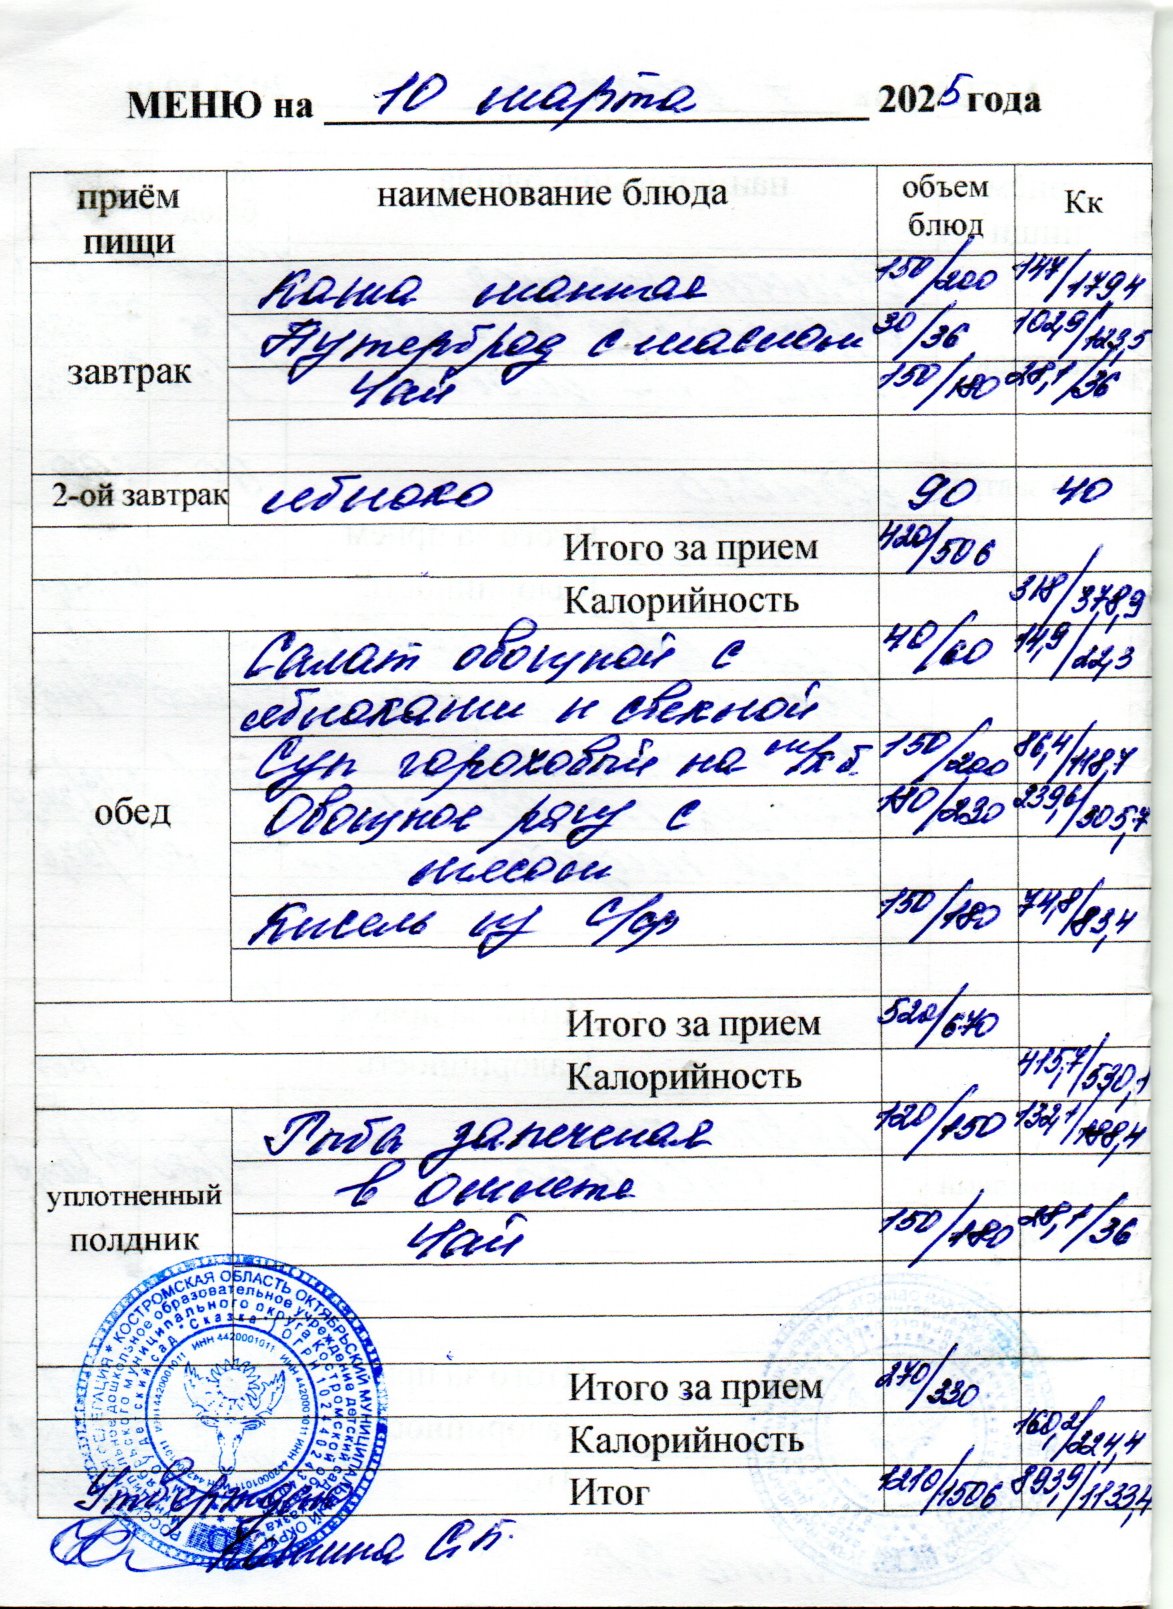 МЕНЮ на 10 марта 2025 года
приём пищи наименование блюда объем блюд Кк
завтрак
Каша манная 150/200 147/179,4
Бутерброд с маслом 30/36 102,9/123,5
Чай 150/180 28,1/36
2-ой завтрак яблоко 90 40
Итого за прием 420/506
Калорийность 318/378,9
обед
Салат овощной с 40/60 14,9/22,3
яблоками и свеклой
Суп гороховый на м/к б. 150/200 86,4/118,7
Овощное рагу с 180/230 239,6/305,7
мясом
Кисель из с/ф 150/180 74,8/83,4
Итого за прием 520/670
Калорийность 415,7/530,1
уплотненный полдник
Рыба запеченая 120/150 132,1/188,4
в омлете
Чай 150/180 28,1/36
Итого за прием 270/330
Калорийность 160,2/224,4
Итог 1210/1506 893,9/1133,4
КОСТРОМСКАЯ ОБЛАСТЬ ОКТЯБРЬСКИЙ МУНИЦИПАЛЬНЫЙ ОКРУГ
дошкольное образовательное учреждение детский сад
муниципального округа Костромской
детский сад "Сказка"
ИНН 4420001011
Утверждаю
С.Г.